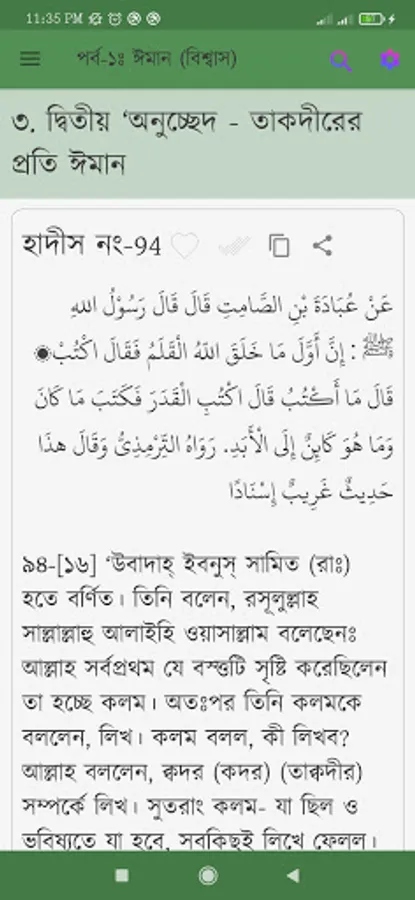 11:35 PM
পর্ব-১ঃ ঈমান (বিশ্বাস)
৩. দ্বিতীয় ‘অনুচ্ছেদ - তাকদীরের
প্রতি ঈমান
হাদীস নং-94
عَنْ عُبَادَةَ بْنِ الصَّامِتِ قَالَ قَالَ رَسُوْلُ اللهِ
ﷺ : إِنَّ أَوَّلَ مَا خَلَقَ اللهُ الْقَلَمُ فَقَالَ اكْتُبْ
قَالَ مَا أَكْتُبُ قَالَ اكْتُبِ الْقَدَرَ فَكَتَبَ مَا كَانَ
وَمَا هُوَ كَابِنٌ إِلَى الْأَبَدِ. رَوَاهُ التِّرْمِذِىُّ وَقَالَ هذَا
حَدِيثٌ غَرِيبٌ إِسْنَادًا
৯৪-[১৬] ‘উবাদাহ্ ইবনুস্ সামিত (রাঃ)
হতে বর্ণিত। তিনি বলেন, রসূলুল্লাহ
সাল্লাল্লাহু আলাইহি ওয়াসাল্লাম বলেছেনঃ
আল্লাহ সর্বপ্রথম যে বস্তুটি সৃষ্টি করেছিলেন
তা হচ্ছে কলম। অতঃপর তিনি কলমকে
বললেন, লিখ। কলম বলল, কী লিখব?
আল্লাহ বললেন, ক্বদর (কদর) (তাক্বদীর)
সম্পর্কে লিখ। সুতরাং কলম- যা ছিল ও
ভবিষ্যতে যা হবে, সবকিছুই লিখে ফেলল।